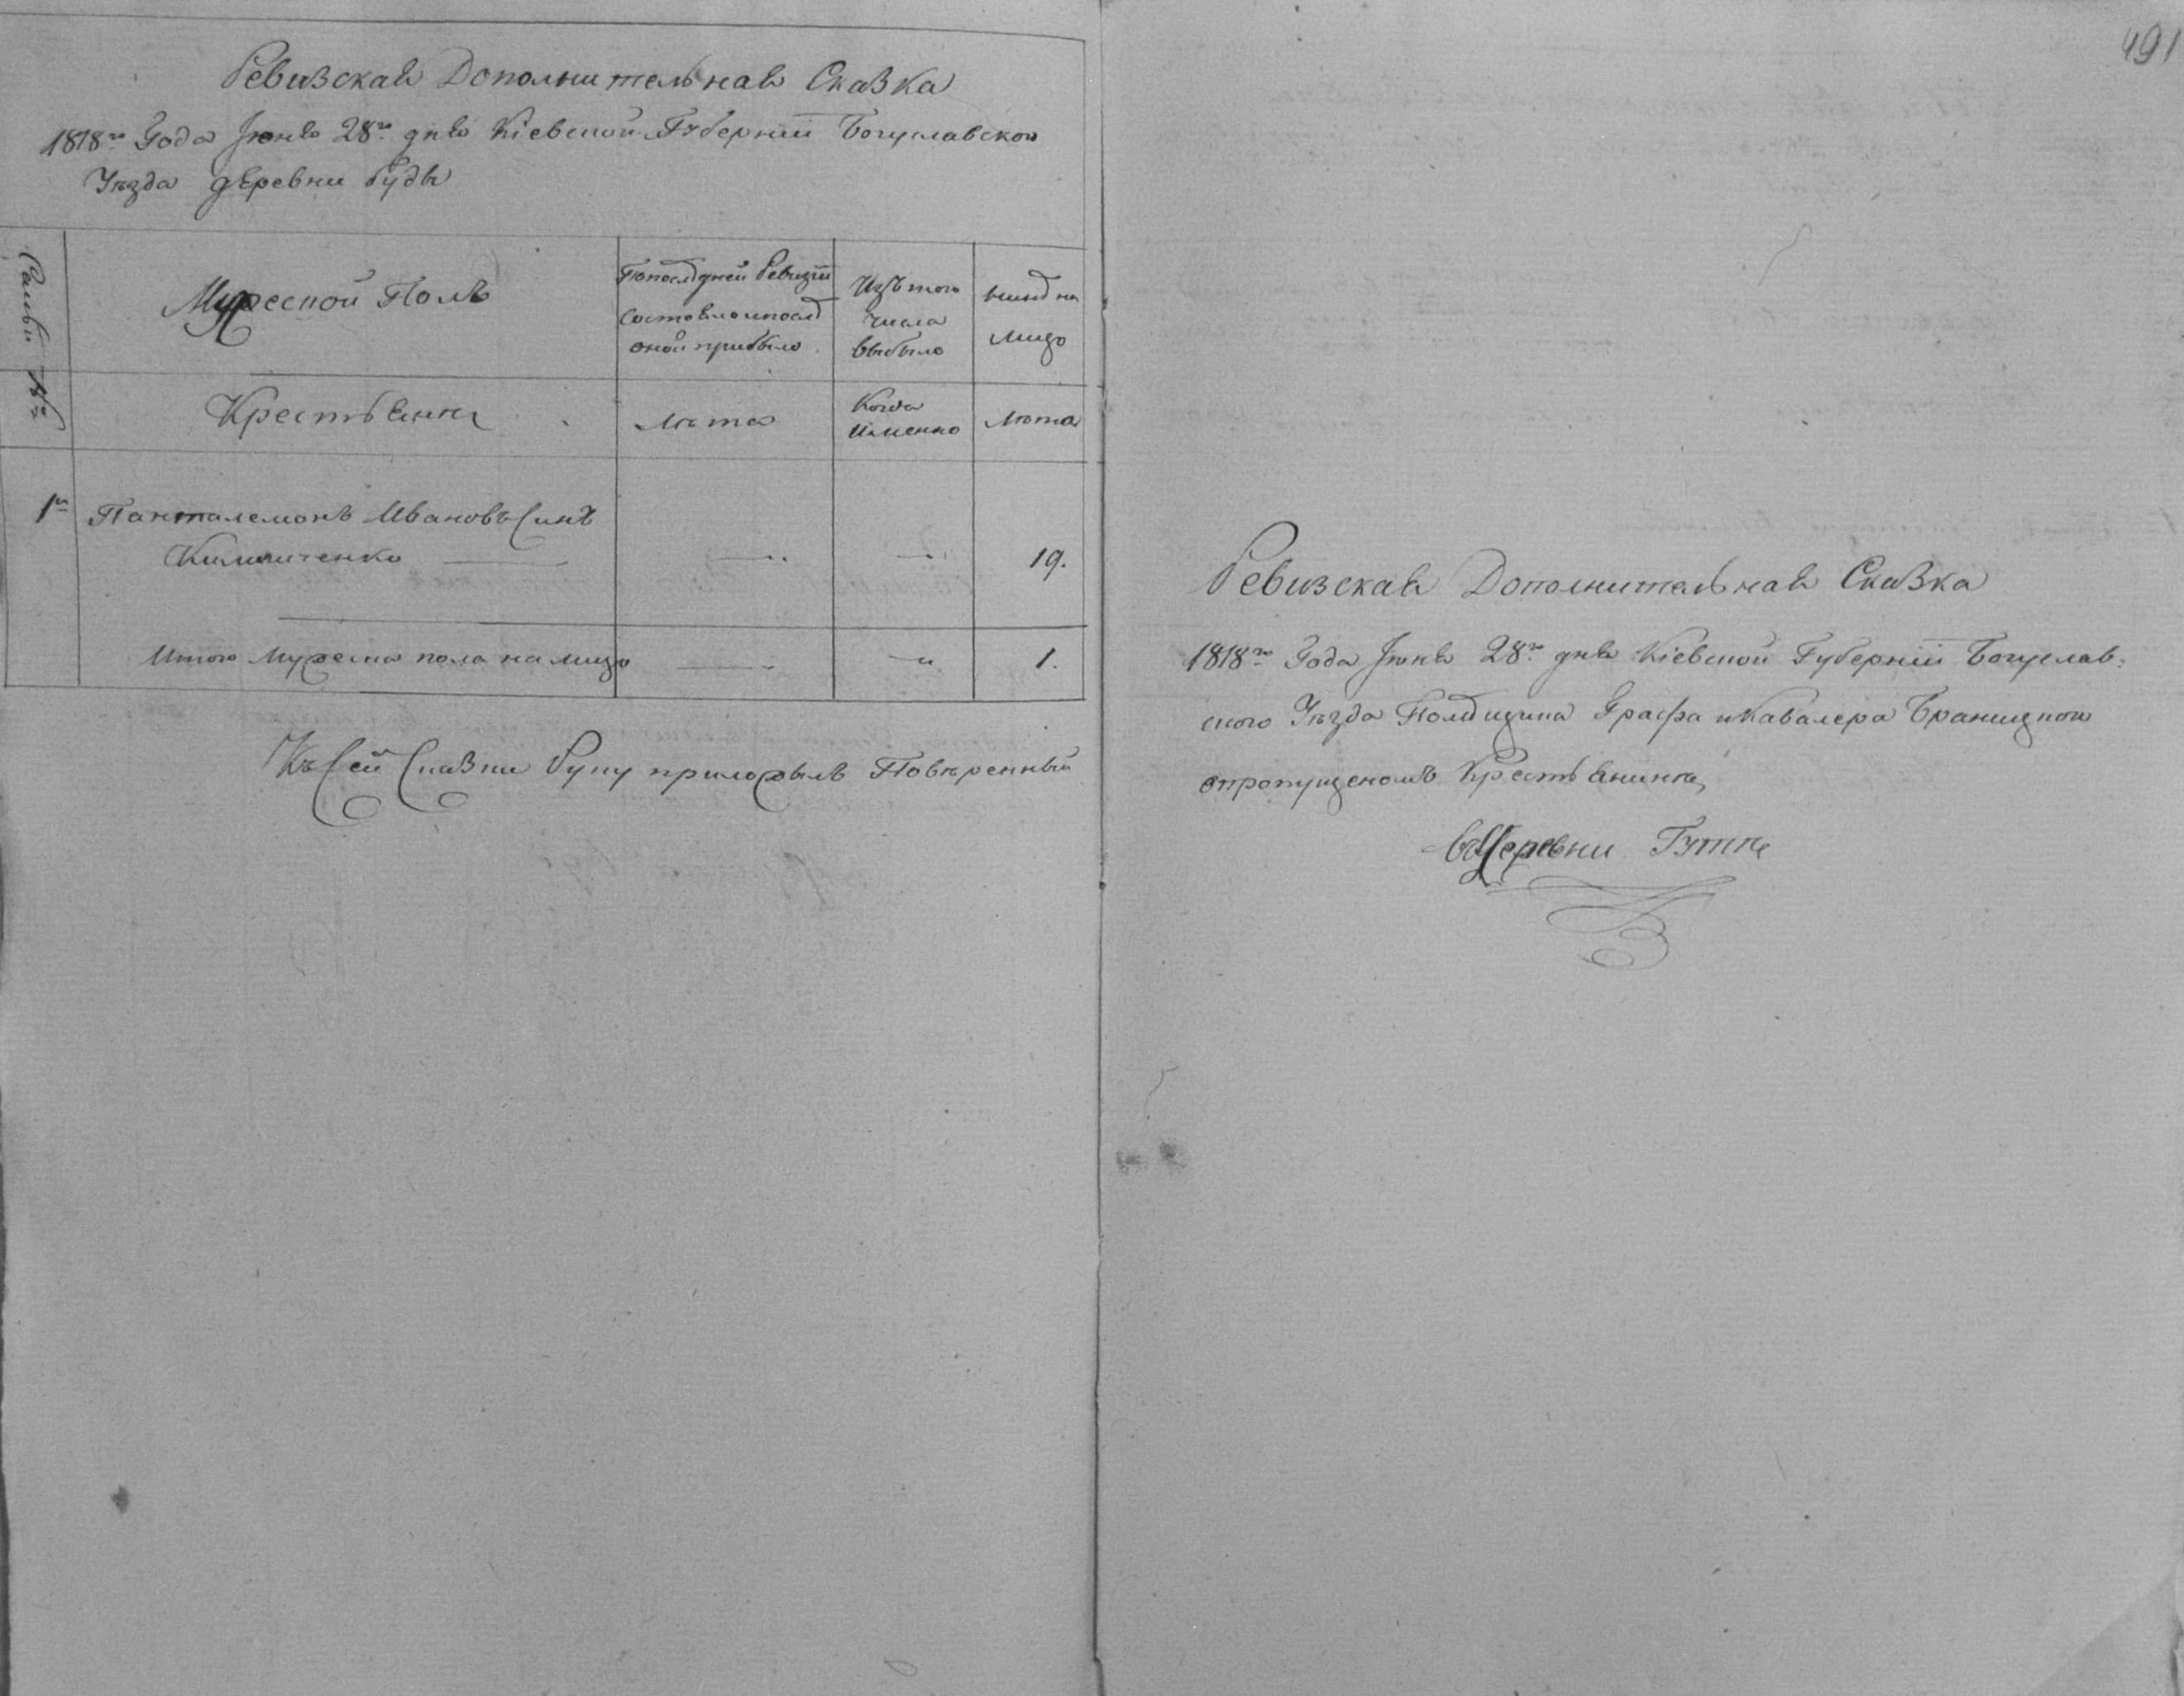 Ревизская Дополнительная Сказка
1818го Года Іюня 28го дня Кіевской Губерніи Богуславского
Уѣзда деревни Руды
Самьи №
Мужеской Полъ
По последней Ревизіи
состояло и после
оной прибыло
Изъ того
числа
выбыло
ныне на
лицо
Крестьяни
лѣта
Когда
именно
лѣта
1й
Панталемонъ Ивановъ Синъ
19.
Итого Мужеска пола на лицо
1.
Къ Сей Сказки Руку приложылъ Повѣренный
491
Ревизская Дополнительная Сказка
1818го Года Іюня 28го дня Кіевской Губерніи Богуслав:
ского Уѣзда Помещика Графа и Кавалера Браницкого
опропущеномъ Крестьянине
въ Деревни